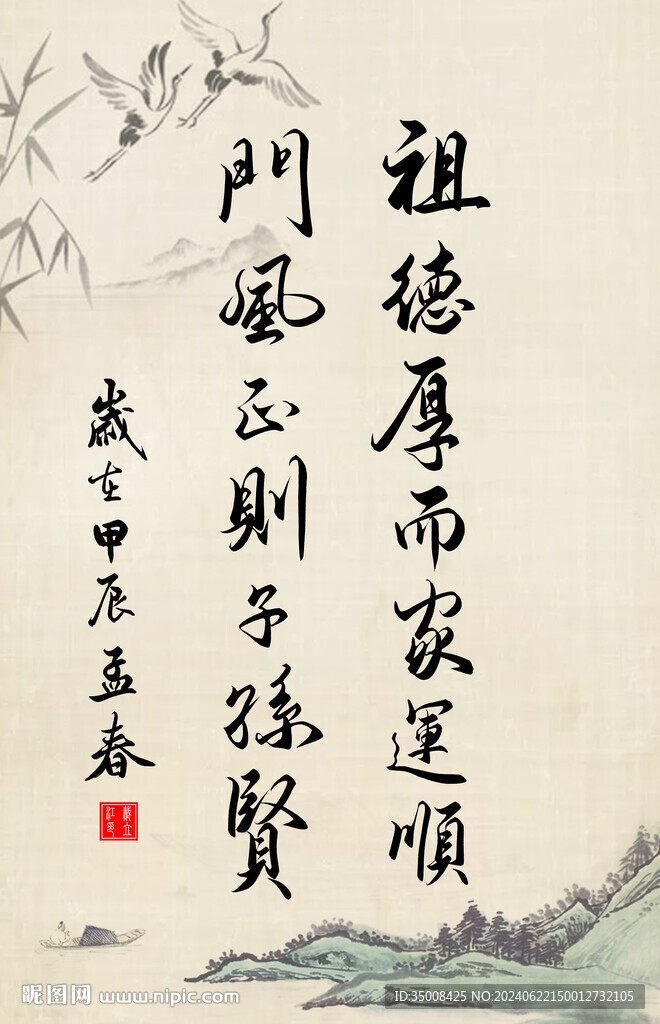 祖德厚而家運順
門風正則子孫賢
歲在甲辰孟春
昵图网 www.nipic.com
ID:35008425 NO:20240622150012732105